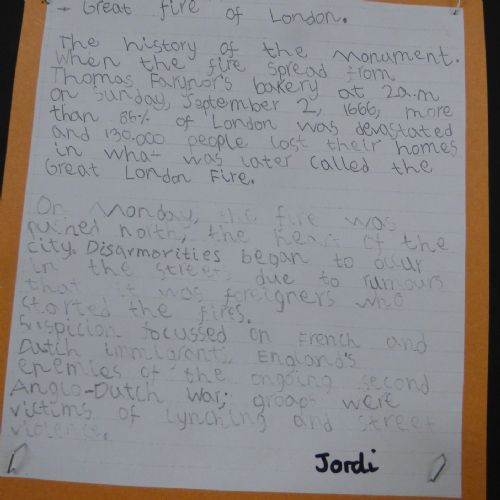 - Great fire of London.
The history of the monument.
When the fire spread from
Thomas Farynor's bakery at 2a.m
on Sunday, September 2, 1666, more
than 86% of London was devastated
and 130.000 people lost their homes
in what was later called the
Great London Fire.
On Monday, the fire was
north, the heart of the
city. Disarmorities began to occur
in the street due to rumours
that it was foreigners who
started the fires.
Suspicion focussed on French and
Dutch immigrants, England's
enemies of the ongoing second
Anglo-Dutch War; groops were
victims of lynching and street
violence.
Jordi